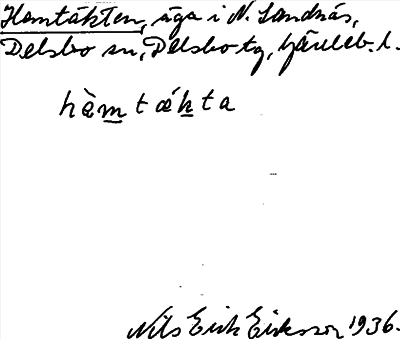 Hemtäkten, äga i N. Sandnäs,
Delsbo sn, Delsbo tg, Gävleb. l.
hæ̀mtǽkta
Nils Erik Eriksson 1936.